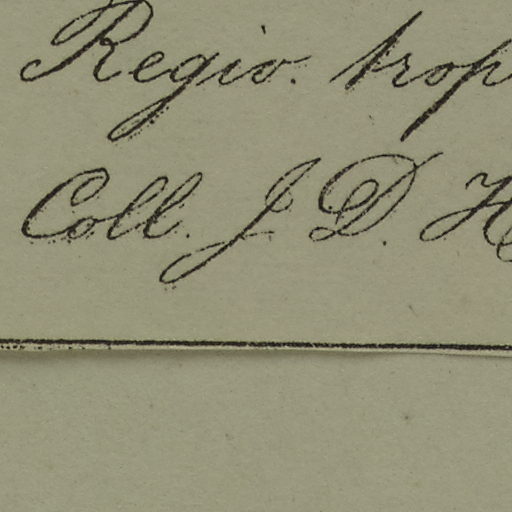 Regio. trop
Coll. J. D. H